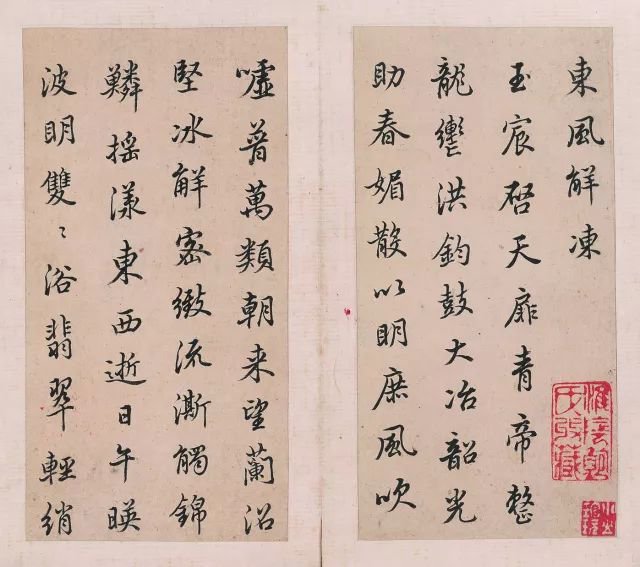 東風解凍
玉宸啓天扉青帝整
龍轡洪鈞鼓大冶韶光
助春媚散以明庶風吹
噓普萬類朝来望蘭沼
堅冰解密緻流澌觸錦
鱗揺漾東西逝日午暎
波明雙〻浴翡翠輕綃